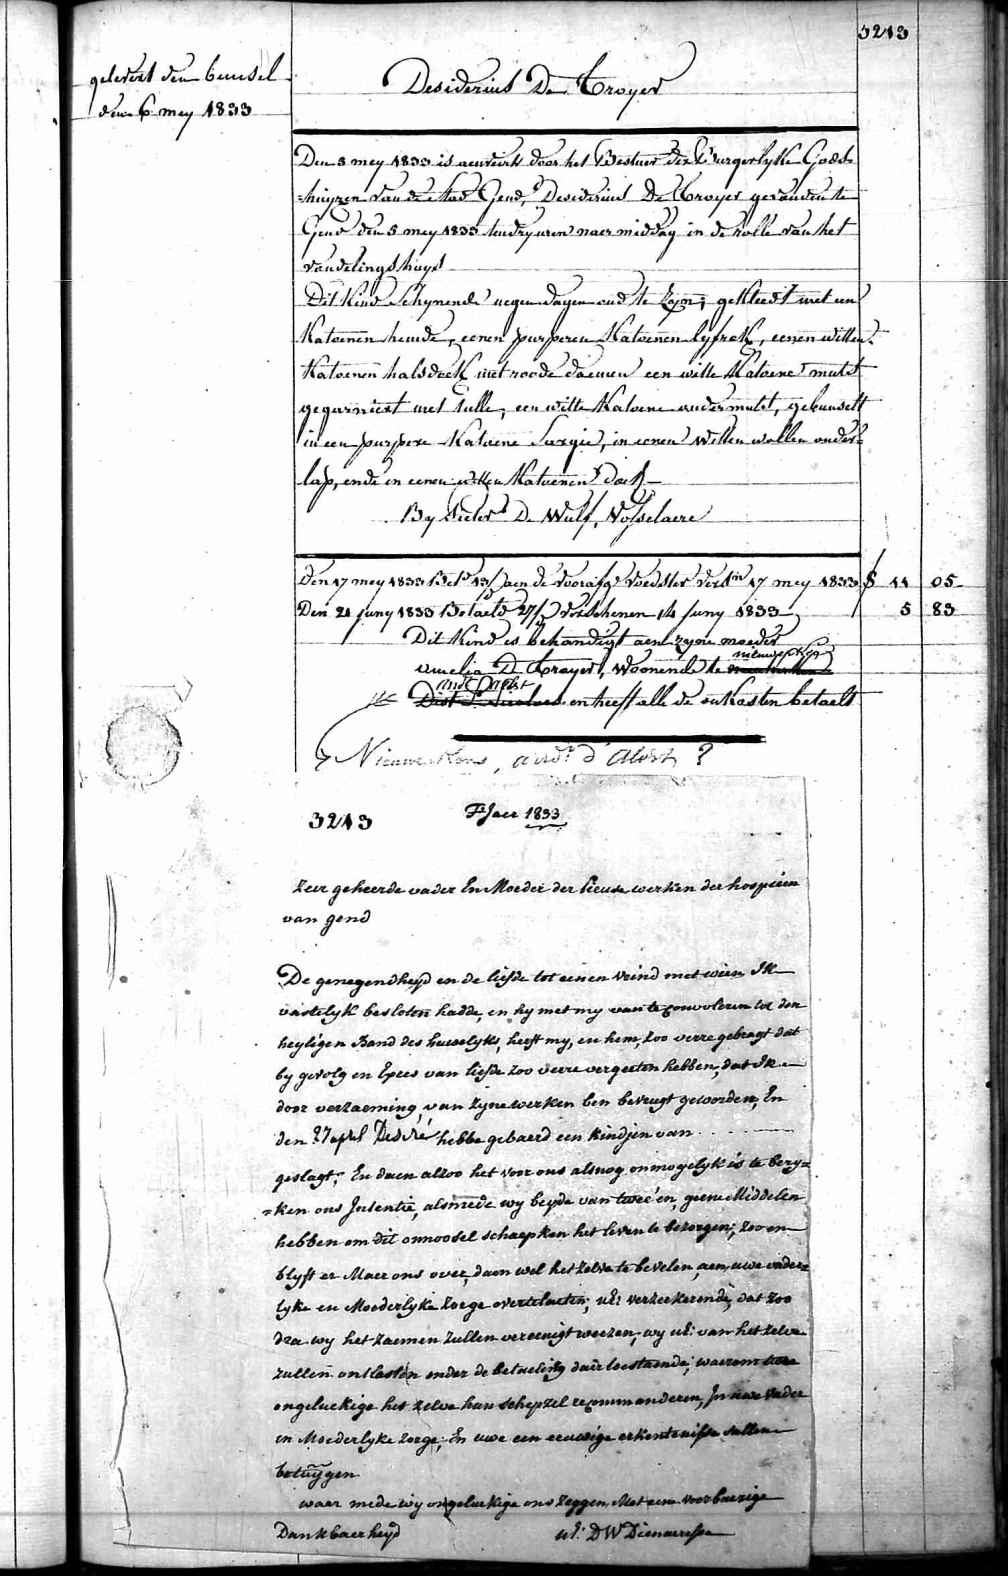 3213
gelevert den bundel
den 6 mey 1833
Desiderius De Troyer
Den 5 mey 1833 is aenveerdt door het Bestuer der Burgerlyke Gods-
=huyzen van de Stad Gend, Desiderius De Troyer gevonden te
Gend den 5 mey 1833 ten dry uren naer middag in de rolle van het
vondelingshuys
Dit Kind schynende negen dagen oud te zyn; gekleedt met een
Katoenen hemde, eenen purperen Katoenen lyfrok, eenen witten
Katoenen halsdoek met roode daemen een witte Katoene muts
gegarniert met tulle, een witte Katoene ondermuts, gebunselt
in een purpere Katoene Sargie, in eenen witten wollen onder-
lap, ende in eenen witten Katoenen doek
By Pieter De Wulf, Vosselaere
Den 17 mey 1833 Bet.d 13/ aen de voorafg.e voedster versch.n 17 mey 1833 f 11 05
Den 21 Juny 1833 Betaeld 27/ verschenen 14 Juny 1833 5 83
Dit Kind is behandigt aen zyne moeder
nieuwerken
amelia De Troyer, woonende te
ard. Aelst
Dist. St. Nicolaes en heeft alle de onkosten betaelt
Nieuwerkens, arrd.t d'Alost ?
3213 Jaer 1833
Zeer geheerde vader En Moeder der pieuse werken der hospicien
van gend
De genegendheyd en de liefde tot eenen vrind met wien Ik
vastelyk besloten hadde, en hy met my van te convoleren tot den
heyligen Band des huwelyks, heeft my, en hem, zoo verre gebragt dat
by gevolg en Exces van liefde zoo verre vergeeten hebben, dat Ik
door verzaeming van zyne werken ben bevrugt geworden, En
den 27 april Desiré hebbe gebaerd een kindjen van
geslagt; En daer alzoo het voor ons alsnog onmogelyk is te bery=
=ken ons Intentie, alsmede wy beyde van twee'en, geene Middelen
hebben om dit onnoosel schaepken het leven te bezorgen; zoo en
blyft er Maer ons over, daen wel het zelve te bevelen, aen uwe vader=
lyke en Moederlyke zorge overtelaeten; ul: verzeekerende, dat zoo
dra wy het zaemen zullen vereenigt weezen, wy ul: van het zelve
zullen ontlasten onder de betaeling daer toestaende; waerom twee
ongeluckige het zelve hun schepzel recommanderen, In uwe vader
en Moederlyke zorge; En uwe een eeuwige erkentenisse sullen
betuygen
waar mede wy ongeluckige ons zeggen Met eene voorbaerige
Dankbaerheyd ul: DW Dienaeresse